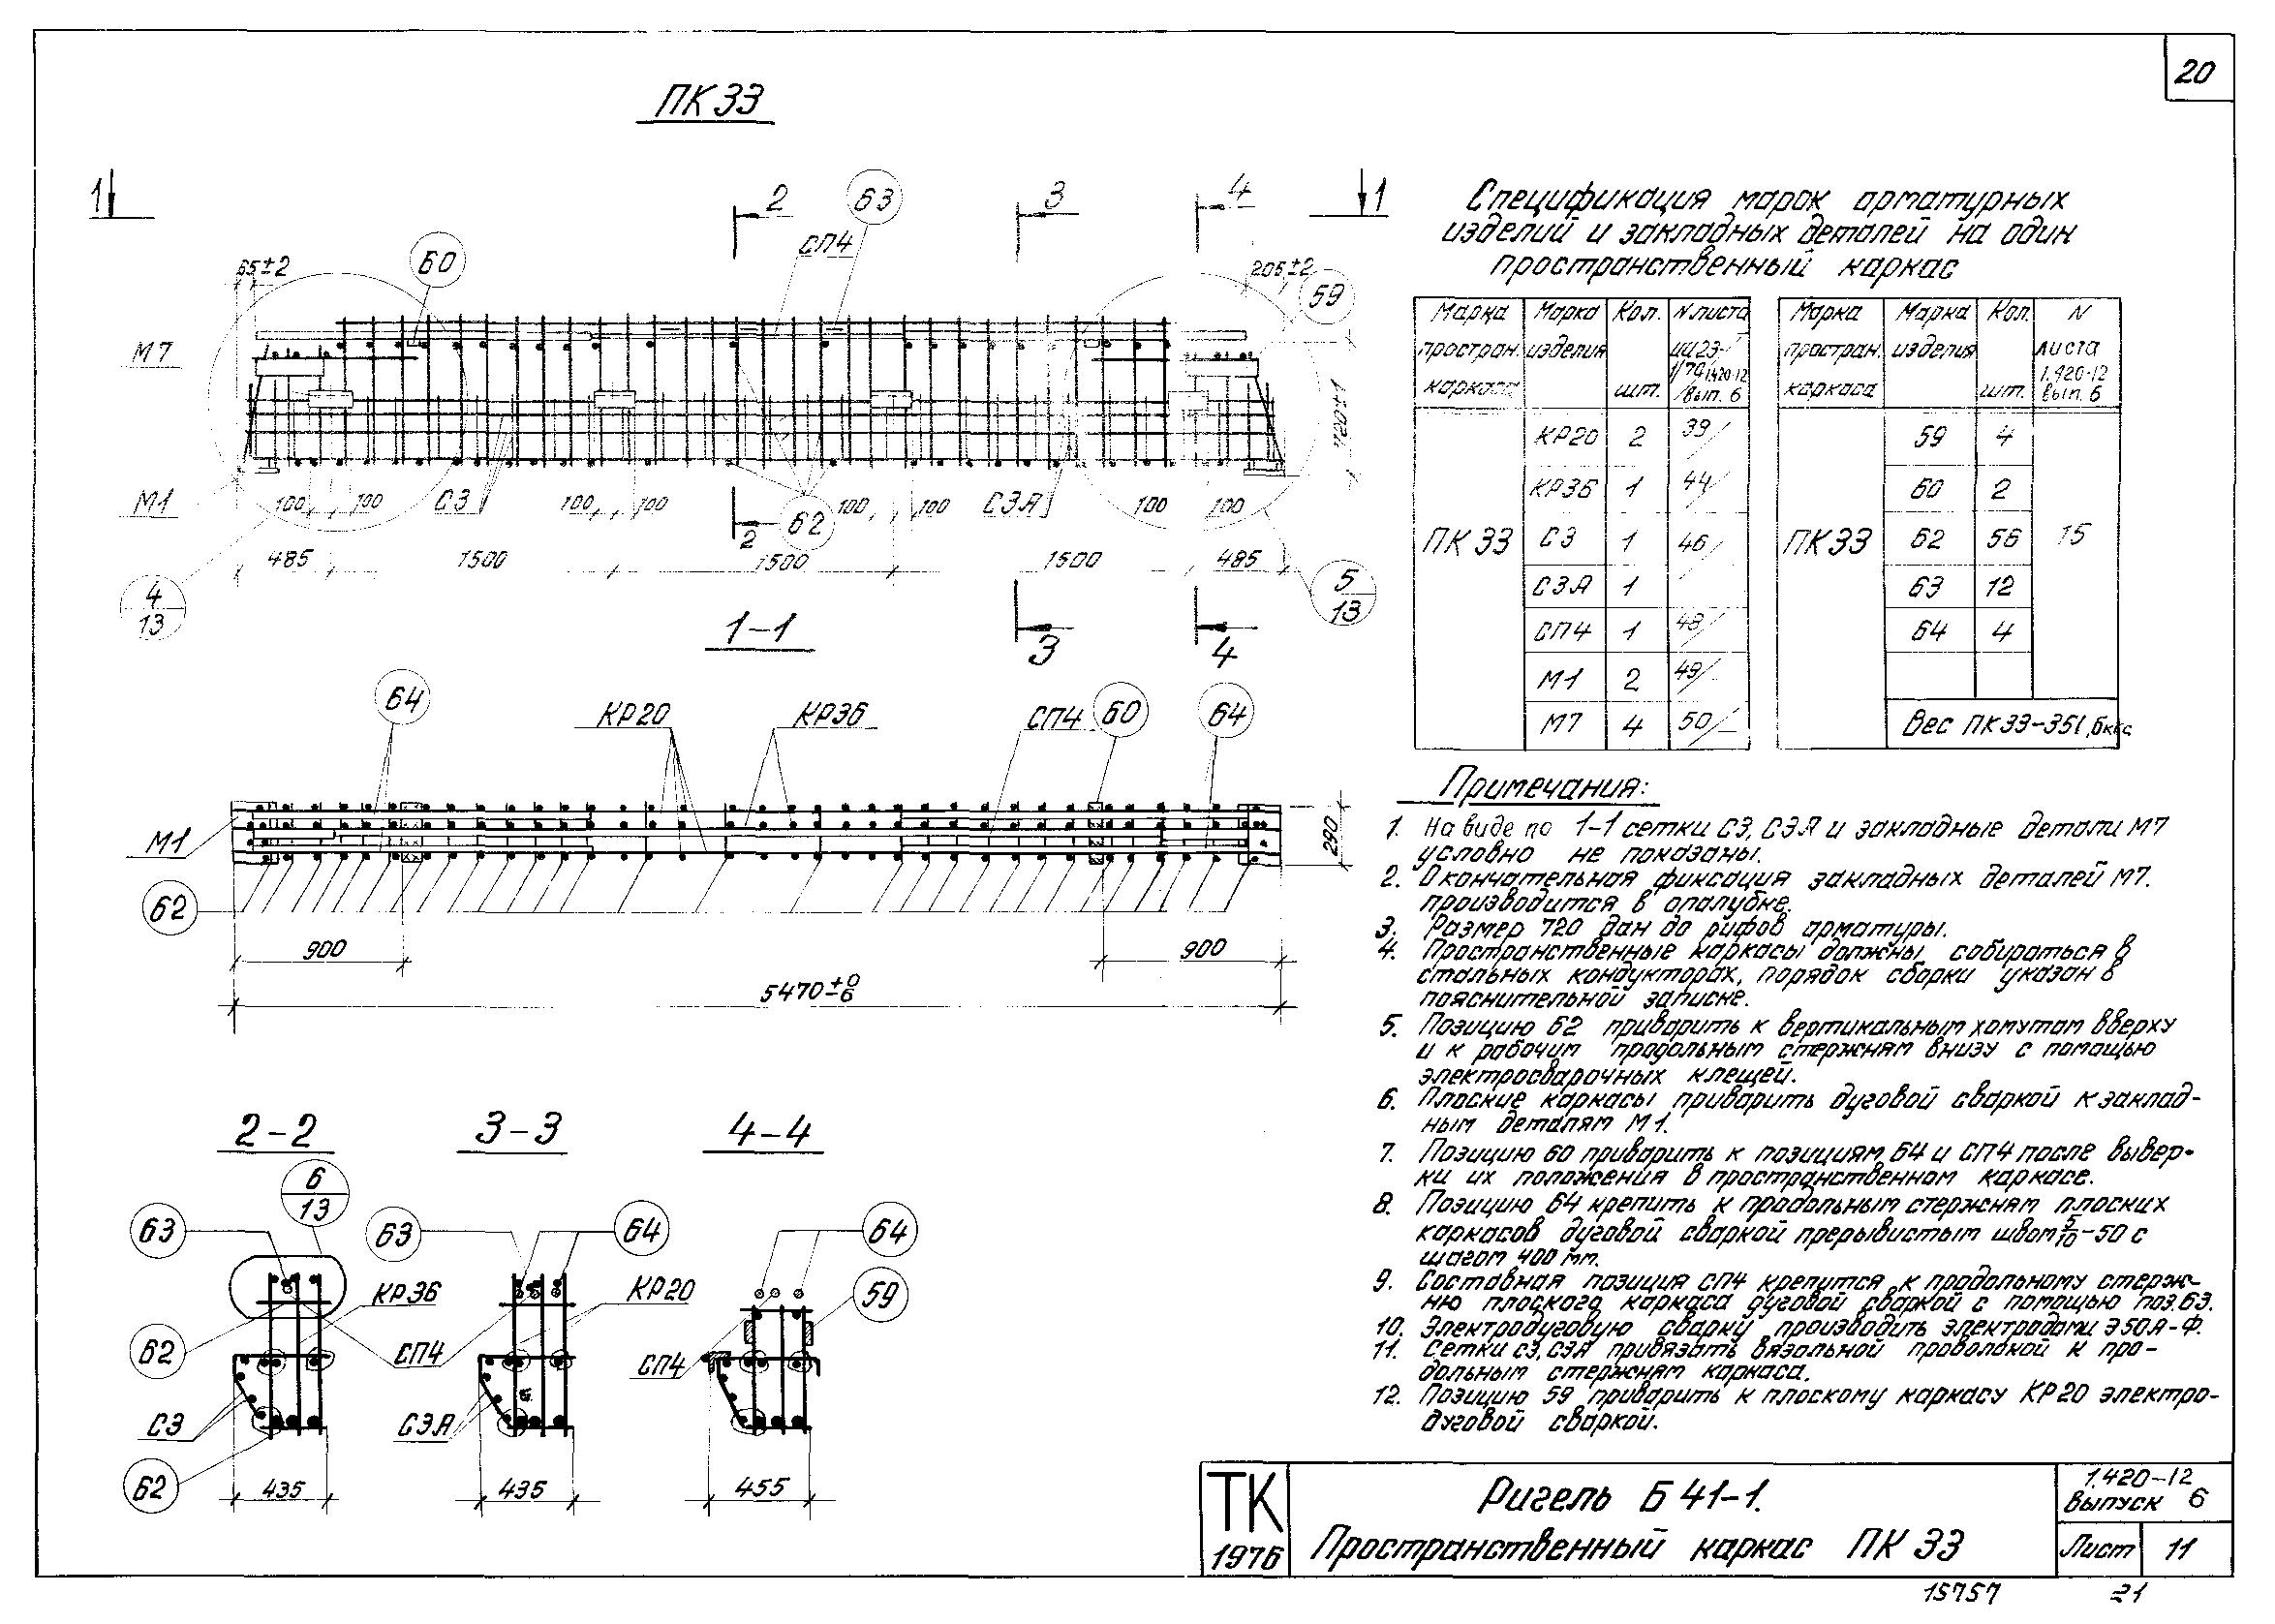 20
ПК 33
1
2
63
3
4
1
СП4
65±2
60
205±2
59
М7
720±1
М1
100
100
СЗ
100
100
2
62
100
100
СЗА
100
100
485
1500
1500
1500
485
4
13
5
13
3
4
1-1
64
КР20
КР36
СП4
60
64
М1
290
62
900
900
5470±0/6
2-2
3-3
4-4
6
13
63
63
64
64
КР36
КР20
59
62
СП4
СП4
СЗ
СЗА
62
435
435
455
Спецификация марок арматурных
изделий и закладных деталей на один
пространственный каркас
Марка простран. каркаса
Марка изделия
Кол. шт.
N листа ИИ23-1/70 1.420-12 вып. 6
ПК 33
КР20 2 39/
КР36 1 44/
СЗ 1 46/
СЗА 1
СП4 1 48/
М1 2 49/
М7 4 50/
Марка простран. каркаса
Марка изделия
Кол. шт.
N листа 1.420-12 вып. 6
ПК 33
59 4
60 2
62 56
63 12
64 4
15
Вес ПК 33-351,6 кгс
Примечания:
1. На виде по 1-1 сетки СЗ, СЗА и закладные детали М7
условно не показаны.
2. Окончательная фиксация закладных деталей М7.
производится в опалубке.
3. Размер 720 дан до рифов арматуры.
4. Пространственные каркасы должны собираться в
стальных кондукторах, порядок сборки указан в
пояснительной записке.
5. Позицию 62 приварить к вертикальным хомутам вверху
и к рабочим продольным стержням внизу с помощью
электросварочных клещей.
6. Плоские каркасы приварить дуговой сваркой к заклад-
ным деталям М1.
7. Позицию 60 приварить к позициям 64 и СП4 после вывер-
ки их положения в пространственном каркасе.
8. Позицию 64 крепить к продольным стержням плоских
каркасов дуговой сваркой прерывистым швом 5/10-50 с
шагом 400 мм.
9. Составная позиция СП4 крепится к продольному стерж-
ню плоского каркаса дуговой сваркой с помощью поз. 63.
10. Электродуговую сварку производить электродами Э50А-Ф.
11. Сетки СЗ, СЗА привязать вязальной проволокой к про-
дольным стержням каркаса.
12. Позицию 59 приварить к плоскому каркасу КР20 электро-
дуговой сваркой.
ТК
1976
Ригель Б 41-1.
Пространственный каркас ПК 33
1.420-12
выпуск 6
Лист 11
15757 21